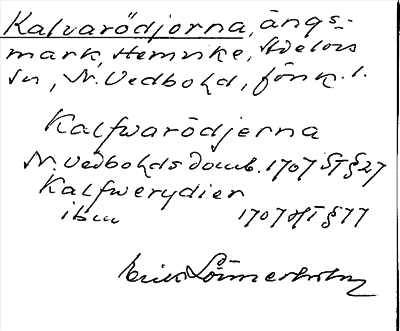 Kalvarödjorna, ängs-
mark, Stemnke, Adelövs
sn, N. Vedbold, Jönk. l.
Kalfwarödjerna
N. Vedbolds domb. 1707 ST § 27
Kalfwerydier
ibm 1707 HT § 77